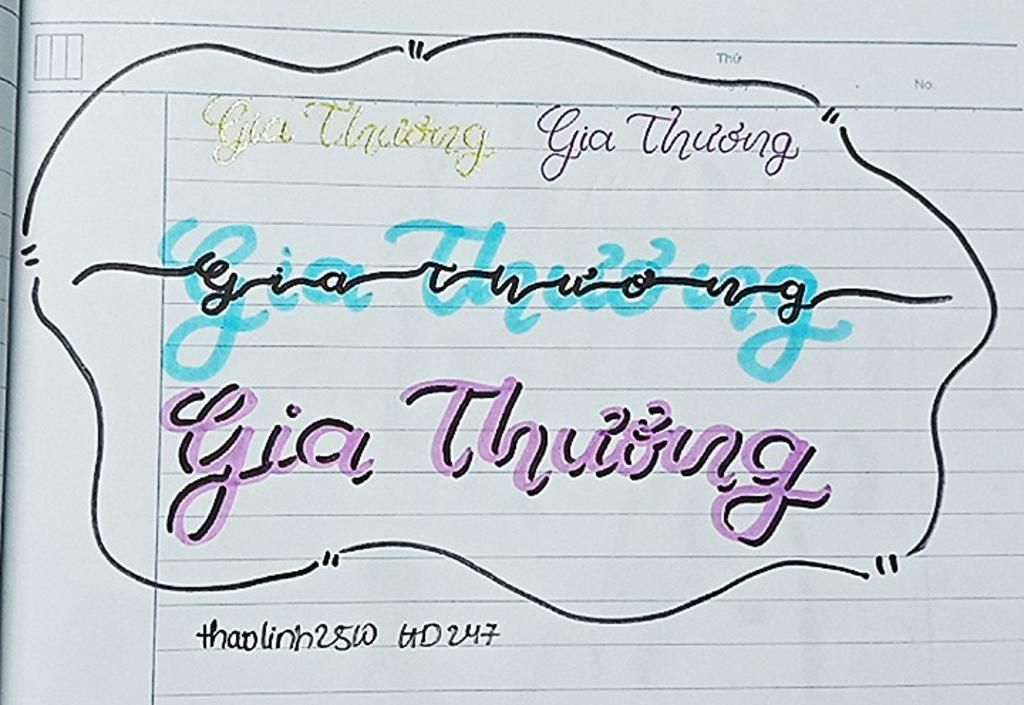 Thứ
Ngày No.
Gia Thương Gia Thương
Gia Thương
Gia Thương
Gia Thưởng
thaolinh2510 HD247